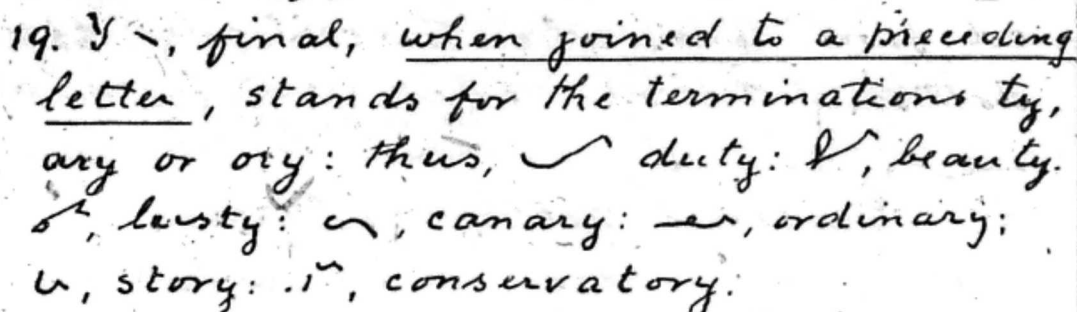 19. Y \, final, when joined to a preceding
letter, stands for the terminations ty,
ary or ory: thus, duty: , beauty.
, lusty: , canary: , ordinary;
, story: , conservatory.